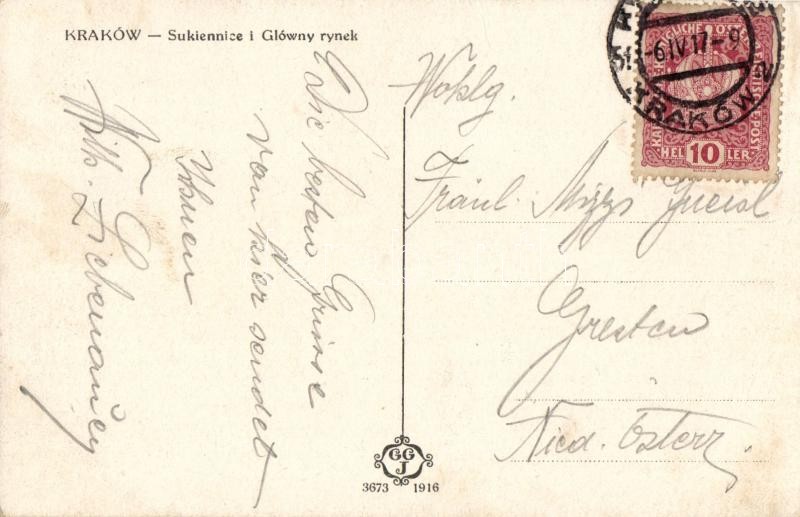 KRAKÓW — Sukiennice i Główny rynek
Die besten Grüsse
von hier sendet
Ihnen
Wilh.
KAIS. KÖNIGLICHE ÖSTERREICHISCHE POST
10
HELLER
-6 IV 17-9
KRAKÓW
Wohlg.
Fräul. Mizzi
Gresten
Nied. Österr.
GG
J
3673 1916